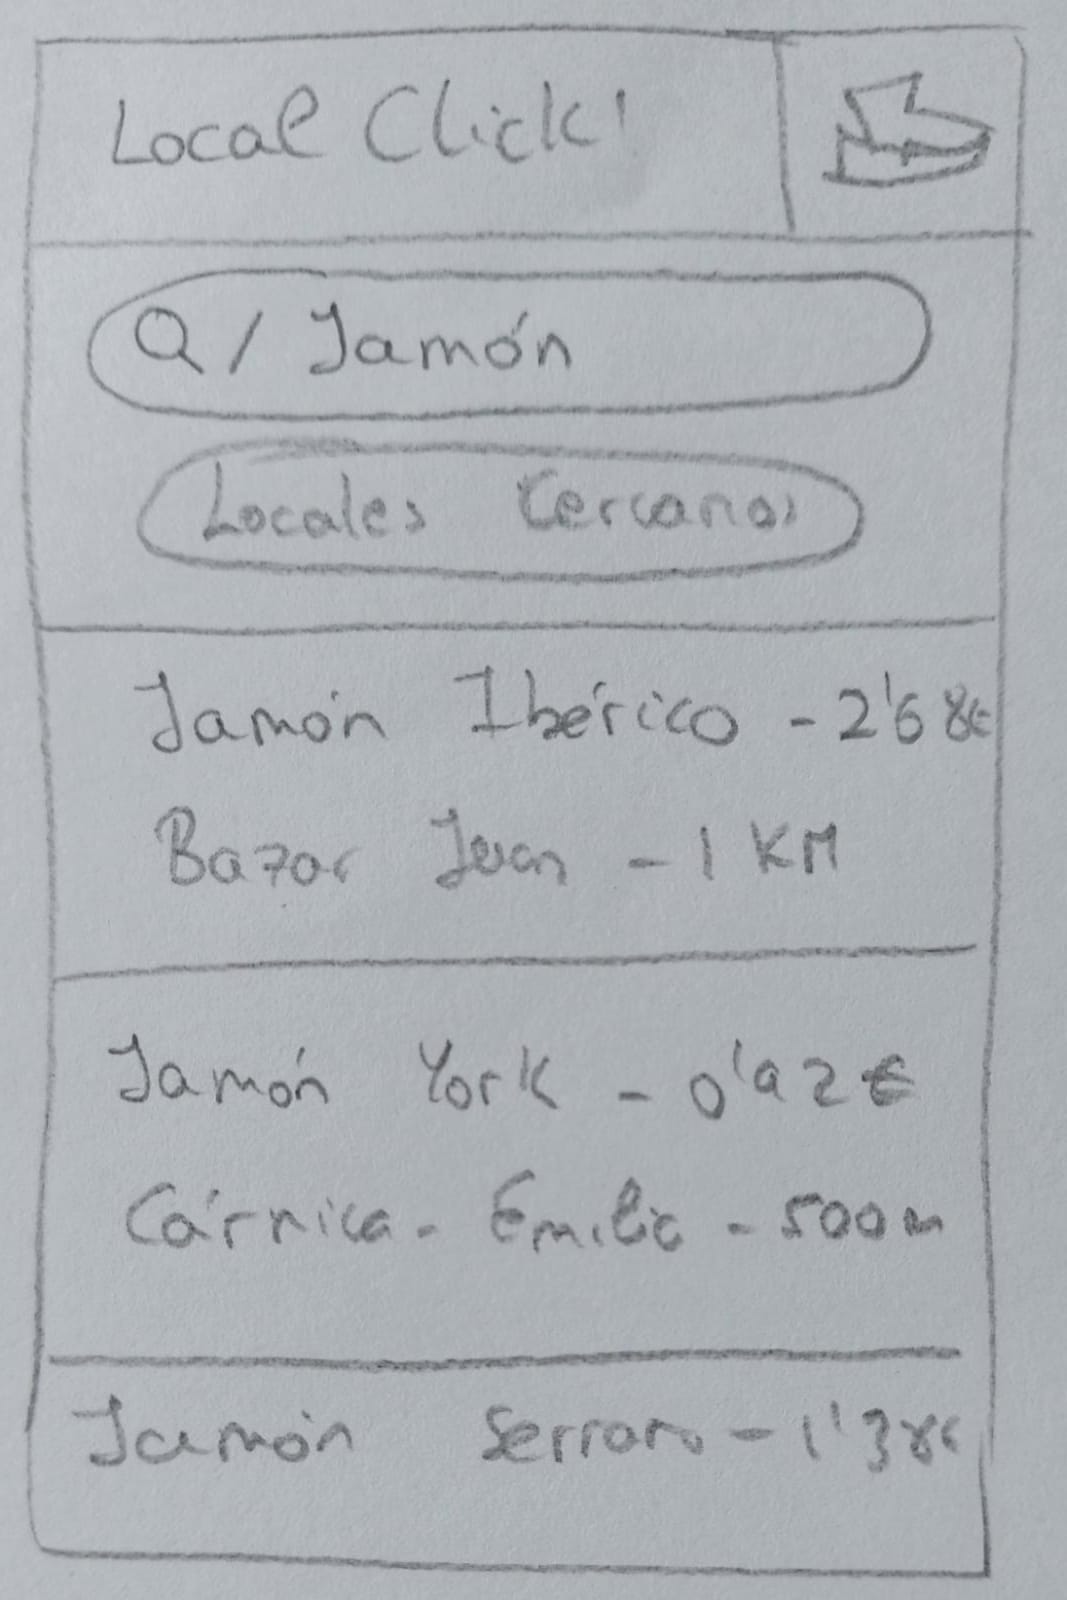 Local Click!
/ Jamón
Locales Cercanos
Jamón Ibérico - 2'68€
Bazar Juan - 1 KM
Jamón York - 0'92€
Cárnica - Emilic - 500m
Jamón Serrano - 1'38€